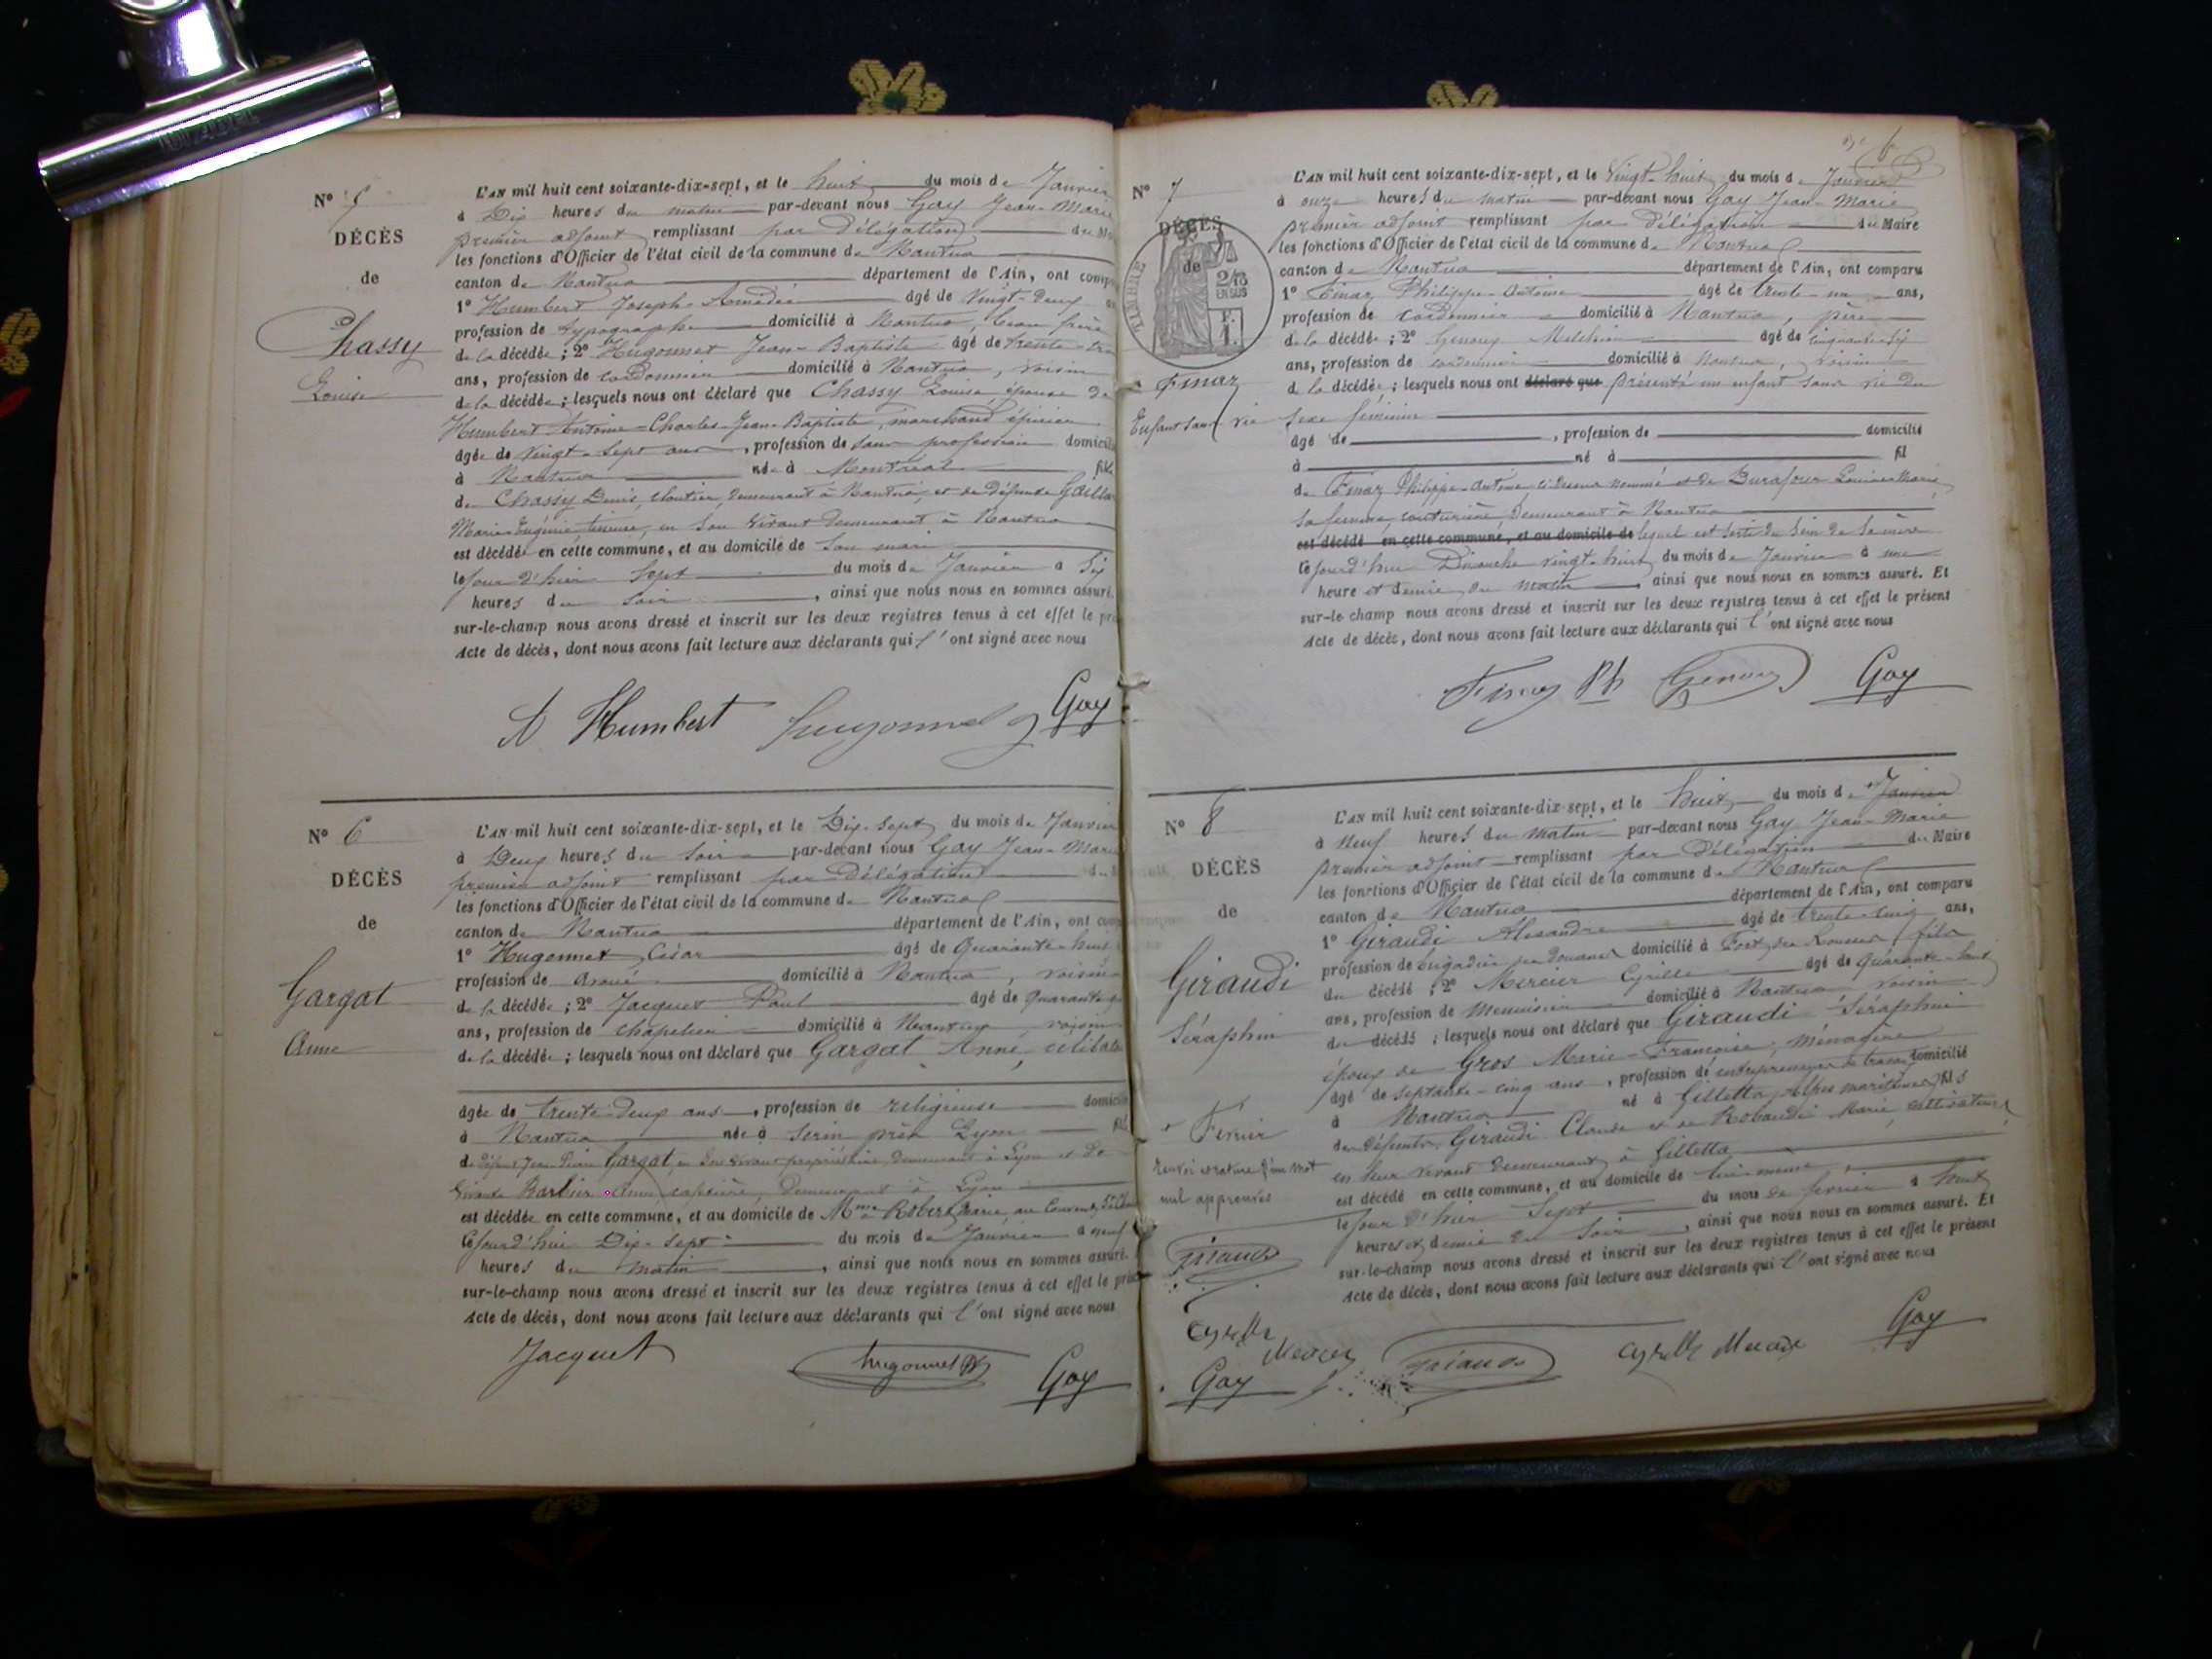 N° 5
DÉCÈS
de
Chassy
Louise
L'AN mil huit cent soixante-dix-sept, et le huit du mois de Janvier
à Dix heures du matin par-devant nous Gay Jean-Marie
premier adjoint remplissant par Délégation du
les fonctions d'Officier de l'état civil de la commune de Nantua
canton de Nantua département de l'Ain, ont
1° Humbert Joseph-Amédée âgé de Vingt-Deux
profession de typographe domicilié à Nantua, beau frère
de la décédée ; 2° Hugonnet Jean-Baptiste âgé de trente
ans, profession de cordonnier domicilié à Nantua, voisin
de la décédée ; lesquels nous ont déclaré que Chassy Louise, épouse de
Humbert Antoine-Charles-Jean-Baptiste, marchand épicier
âgée de vingt-sept ans, profession de sans profession
à Nantua née à Montréal
de Chassy Denis, cloutier, demeurant à Nantua, et de défunte
Marie-Eugénie en son vivant demeurant à Nantua
est décédée en cette commune, et au domicile de son mari
le jour d'hier Sept du mois de Janvier à Six
heures du soir, ainsi que nous nous en sommes assuré.
sur-le-champ nous avons dressé et inscrit sur les deux registres tenus à cet effet le
Acte de décès, dont nous avons fait lecture aux déclarants qui l'ont signé avec nous
A Humbert Hugonnet Gay
N° 6
DÉCÈS
de
Gargat
Anne
L'AN mil huit cent soixante-dix-sept, et le Dix-sept du mois de Janvier
à Deux heures du soir par-devant nous Gay Jean-Marie
premier adjoint remplissant par Délégation
les fonctions d'Officier de l'état civil de la commune de Nantua
canton de Nantua département de l'Ain, ont
1° Hugonnet César âgé de Quarante-huit
profession de avoué domicilié à Nantua, voisin
de la décédée ; 2° Jacquet Paul âgé de quarante
ans, profession de chapelier domicilié à Nantua, voisin
de la décédée ; lesquels nous ont déclaré que Gargat Anne,
âgée de trente-deux ans, profession de religieuse
à Nantua née à Serin près Lyon
de défunt Jean Pierre Gargat, en son vivant propriétaire, demeurant à Lyon et de
vivante Barbier Anne demeurant à Lyon
est décédée en cette commune, et au domicile de Mme Robert
le jour d'hui Dix-sept du mois de Janvier à neuf
heures du matin, ainsi que nous nous en sommes assuré.
sur-le-champ nous avons dressé et inscrit sur les deux registres tenus à cet effet le
Acte de décès, dont nous avons fait lecture aux déclarants qui l'ont signé avec nous
Jacquet Hugonnet Gay
6
N° 7
DÉCÈS
de
TIMBRE
2/10
EN SUS
F.
1.
Emaz
Enfant sans vie
L'AN mil huit cent soixante-dix-sept, et le Vingt-huit du mois de Janvier
à onze heures du matin par-devant nous Gay Jean-Marie
premier adjoint remplissant par délégation du Maire
les fonctions d'Officier de l'état civil de la commune de Nantua
canton de Nantua département de l'Ain, ont comparu
1° Emaz Philippe-Antoine âgé de trente-un ans,
profession de Cordonnier domicilié à Nantua, père
de la décédée ; 2° Genoux Melchior âgé de cinquante-six
ans, profession de cordonnier domicilié à Nantua, voisin
de la décédée ; lesquels nous ont déclaré que présenté un enfant sans vie du
sexe féminin
âgé de , profession de domicilié
à né à fil
de Emaz Philippe-Antoine ci-dessus nommé et de Burafour Louise-Marie
sa femme, couturière, demeurant à Nantua
est décédé en cette commune, et au domicile de lequel est sorti du sein de sa mère
le jourd'hui Dimanche vingt-huit du mois de Janvier à une
heure et demie du matin, ainsi que nous nous en sommes assuré. Et
sur-le-champ nous avons dressé et inscrit sur les deux registres tenus à cet effet le présent
Acte de décès, dont nous avons fait lecture aux déclarants qui l'ont signé avec nous
Emaz Ph Genoux Gay
N° 8
DÉCÈS
de
Giraudi
Séraphin
+ Février
Renvoi et rature d'un mot
nul approuvés
Giraudi
Cyrille
Mercier
Gay
L'AN mil huit cent soixante-dix-sept, et le huit du mois de + Janvier
à Neuf heures du matin par-devant nous Gay Jean-Marie
premier adjoint remplissant par Délégation du Maire
les fonctions d'Officier de l'état civil de la commune de Nantua
canton de Nantua département de l'Ain, ont comparu
1° Giraudi Alexandre âgé de trente-cinq ans,
profession de brigadier des Douanes domicilié à Fort des Rousses, fils
du décédé ; 2° Mercier Cyrille âgé de Quarante-huit
ans, profession de Menuisier domicilié à Nantua voisin
du décédé ; lesquels nous ont déclaré que Giraudi Séraphin
époux de Gros Marie-Françoise, ménagère
âgé de septante-cinq ans, profession de entrepreneur de travaux domicilié
à Nantua né à Gilletta, Alpes maritimes, fils
de défunts Giraudi Claude et de Robaudi Marie, cultivateurs
en leur vivant demeurant à Gilletta
est décédé en cette commune, et au domicile de lui-même
le jour d'hier Sept du mois de février à huit
heures et demie du soir, ainsi que nous nous en sommes assuré. Et
sur-le-champ nous avons dressé et inscrit sur les deux registres tenus à cet effet le présent
Acte de décès, dont nous avons fait lecture aux déclarants qui l'ont signé avec nous
Giraudi Cyrille Mercier Gay